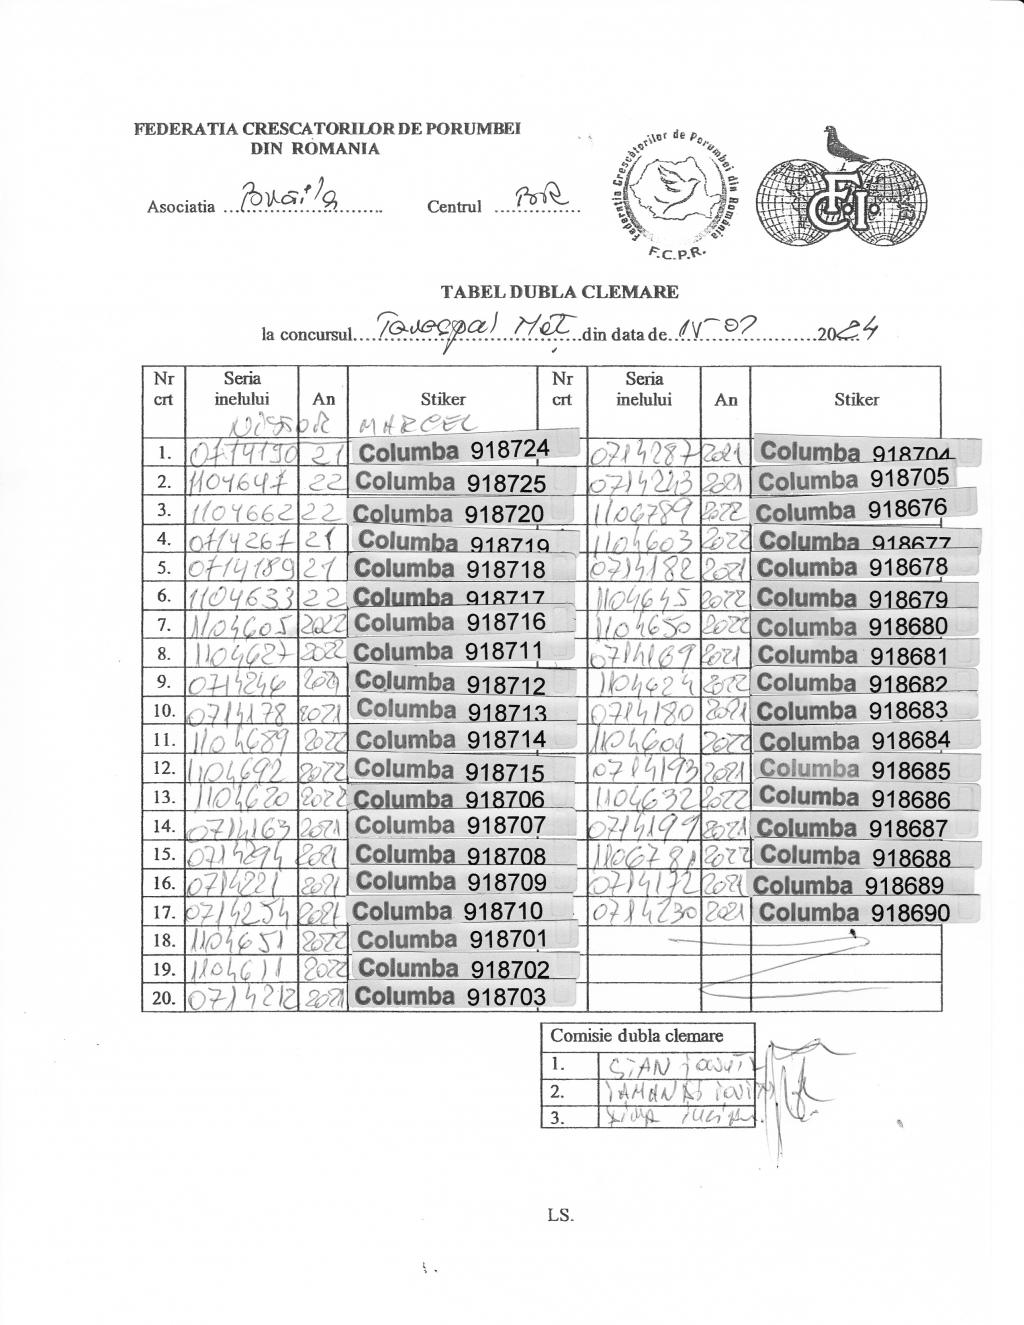 FEDERATIA CRESCATORILOR DE PORUMBEI
DIN ROMANIA
Federatia Crescatorilor de Porumbei din România
F.C.P.R.
F.C.I.
Asociatia Brăila Centrul BR
TABEL DUBLA CLEMARE
la concursul din data de 2024
Nr crt Seria inelului An Stiker Nr crt Seria inelului An Stiker
MARCEL
1. 0714190 21 Columba 918724 0714287 2021 Columba 918704
2. 1104647 22 Columba 918725 0714243 2021 Columba 918705
3. 1104662 22 Columba 918720 1106789 2022 Columba 918676
4. 0714267 21 Columba 918719 1104603 2022 Columba 918677
5. 0714189 21 Columba 918718 0714182 2021 Columba 918678
6. 1104633 22 Columba 918717 1104645 2022 Columba 918679
7. 1104605 2022 Columba 918716 1104650 2022 Columba 918680
8. 1104627 2022 Columba 918711 0714169 2021 Columba 918681
9. 0714246 2021 Columba 918712 1104624 2022 Columba 918682
10. 0714178 2021 Columba 918713 0714180 2021 Columba 918683
11. 1104689 2022 Columba 918714 1104601 2022 Columba 918684
12. 1104692 2022 Columba 918715 0714193 2021 Columba 918685
13. 1104620 2022 Columba 918706 1104632 2022 Columba 918686
14. 0714163 2021 Columba 918707 0714199 2021 Columba 918687
15. 0714294 2021 Columba 918708 1106781 2022 Columba 918688
16. 0714221 2021 Columba 918709 0714172 2021 Columba 918689
17. 0714254 2021 Columba 918710 0714230 2021 Columba 918690
18. 1104651 2022 Columba 918701
19. 1104611 2022 Columba 918702
20. 0714212 2021 Columba 918703
Comisie dubla clemare
1. STAN
2.
3.
LS.